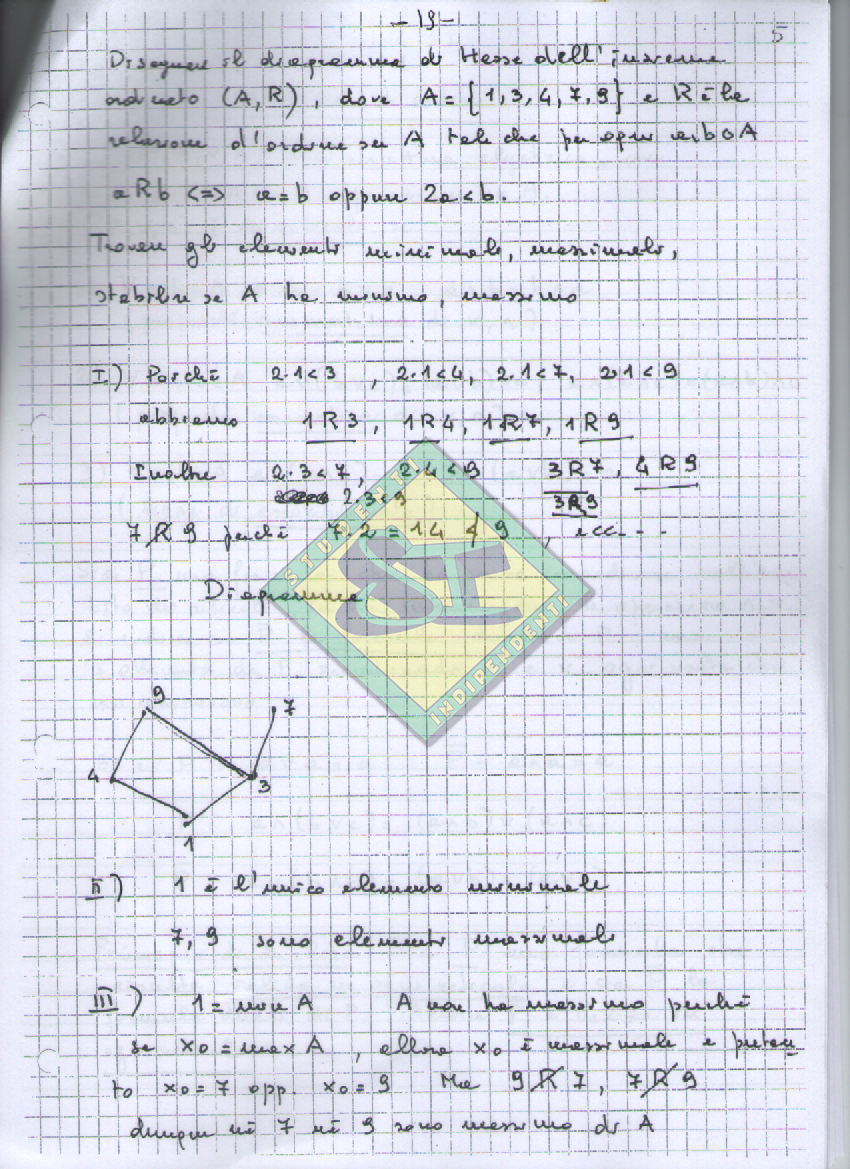 - 19 -
5
Disegnare il diagramma di Hesse dell'insieme
ordinato (A, R), dove A = {1, 3, 4, 7, 9} e R è la
relazione d'ordine su A tale che per ogni a e b ∈ A
a R b <=> a = b oppure 2a < b.
Trovare gli elementi minimali, massimali,
stabilire se A ha minimo, massimo
I) Poiché 2·1<3 , 2·1<4, 2·1<7, 2·1<9
abbiamo 1R3, 1R4, 1R7, 1R9
Inoltre 2·3<7, 2·4<9 3R7, 4R9
2·3<9 3R9
7 R̸ 9 perché 7·2 = 14 ≮ 9 , ecc...
Diagramma
STUDENTI
SI
INDIPENDENTI
9
7
4
3
1
II) 1 è l'unico elemento minimale
7, 9 sono elementi massimali
III) 1 = min A A non ha massimo perché
se x0 = max A , allora x0 è massimale e pertan
to x0 = 7 opp. x0 = 9 Ma 9 R̸ 7, 7 R̸ 9
dunque né 7 né 9 sono massimo di A